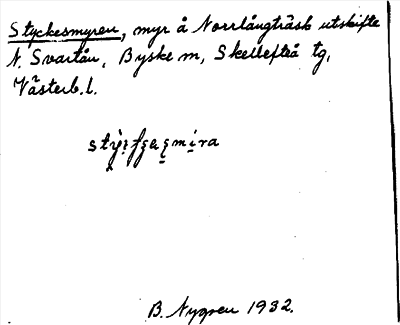 Styckesmyren, myr å Norrlångträsk utskifte
N. Svartån, Byske m, Skellefteå tg,
Västerb. l.
B. Nygren 1932.